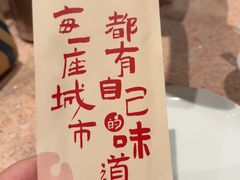 每一座城市
都有自己的味道